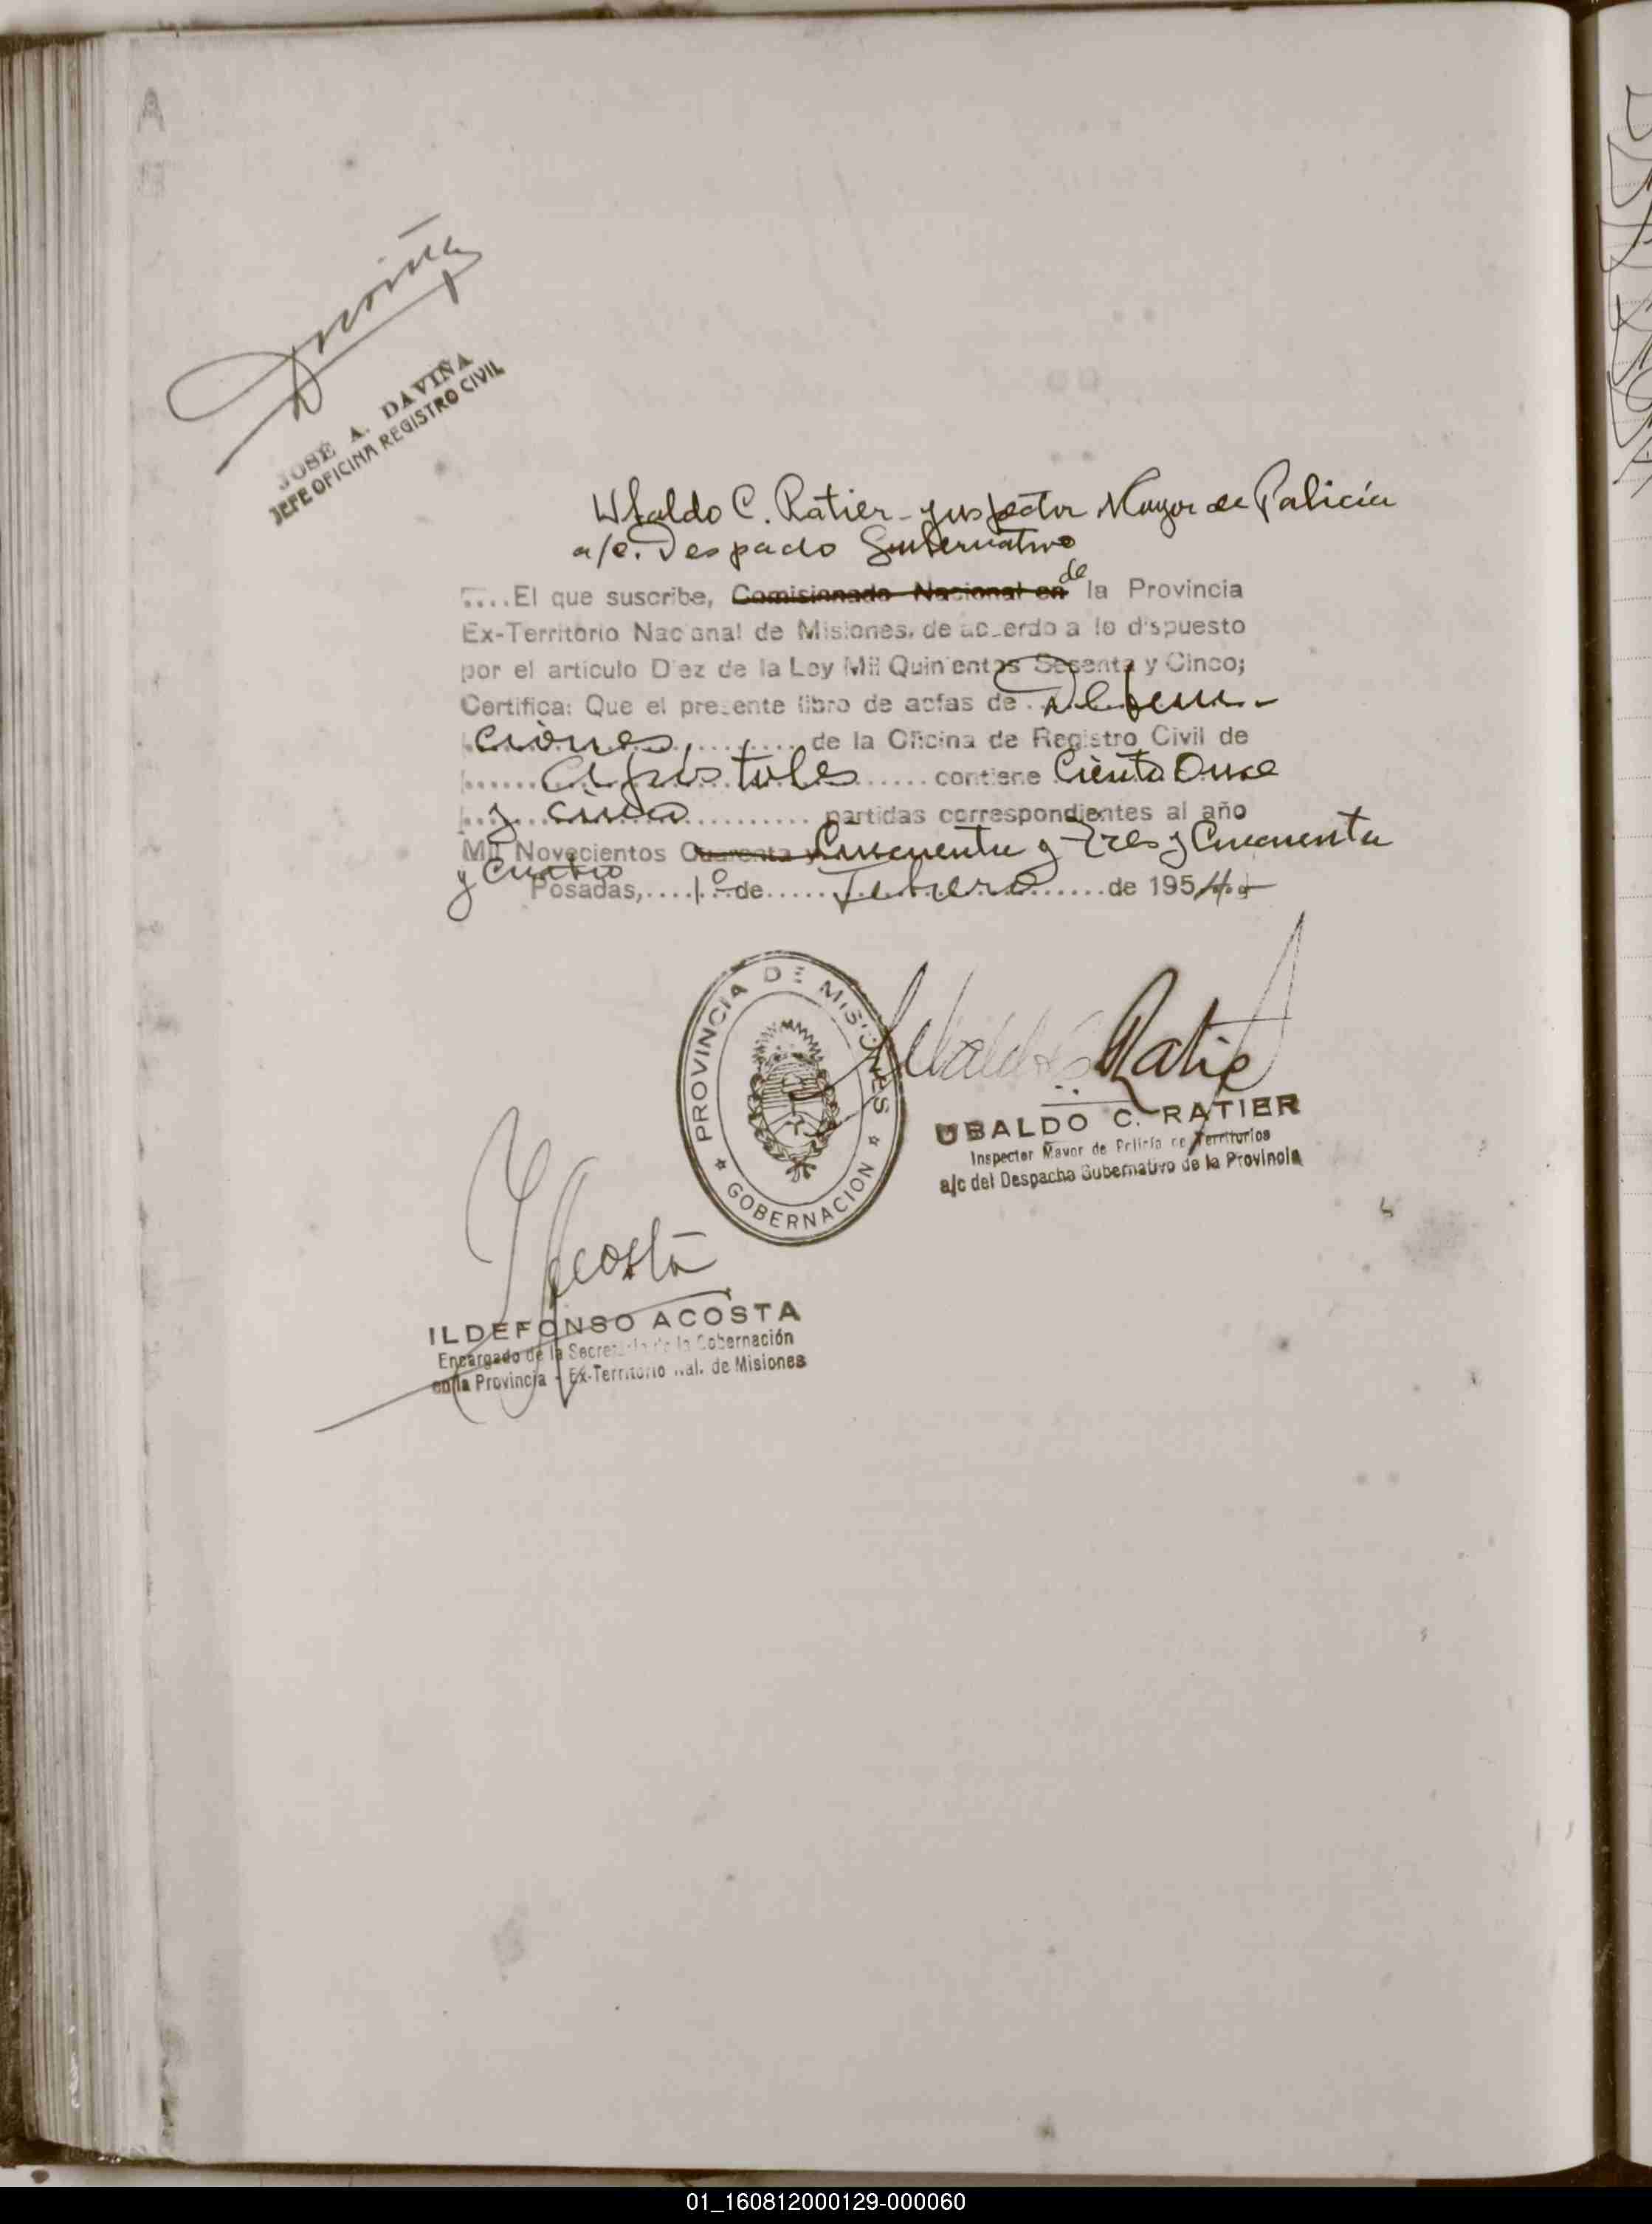 A
JOSÉ A. DAVIÑA
JEFE OFICINA REGISTRO CIVIL
Ubaldo C. Ratier - Inspector Mayor de Policía
a/c. Despacho Gubernativo
....El que suscribe, Comisionado Nacional en de la Provincia
Ex-Territorio Nacional de Misiones, de acuerdo a lo dispuesto
por el artículo Diez de la Ley Mil Quinientos Sesenta y Cinco;
Certifica: Que el presente libro de actas de Defun-
ciones, de la Oficina de Registro Civil de
Apóstoles contiene Ciento Once
y cinco partidas correspondientes al año
Mil Novecientos Cuarenta y Cincuenta y Tres y Cincuenta
y Cuatro
Posadas, 1º de Febrero de 195
PROVINCIA DE MISIONES
GOBERNACION
Ubaldo C Ratier
UBALDO C. RATIER
Inspector Mayor de Policía de Territorios
a/c del Despacho Gubernativo de la Provincia
Acosta
ILDEFONSO ACOSTA
Encargado de la Secretaría de la Gobernación
en la Provincia - Ex-Territorio Nal. de Misiones
01_160812000129-000060